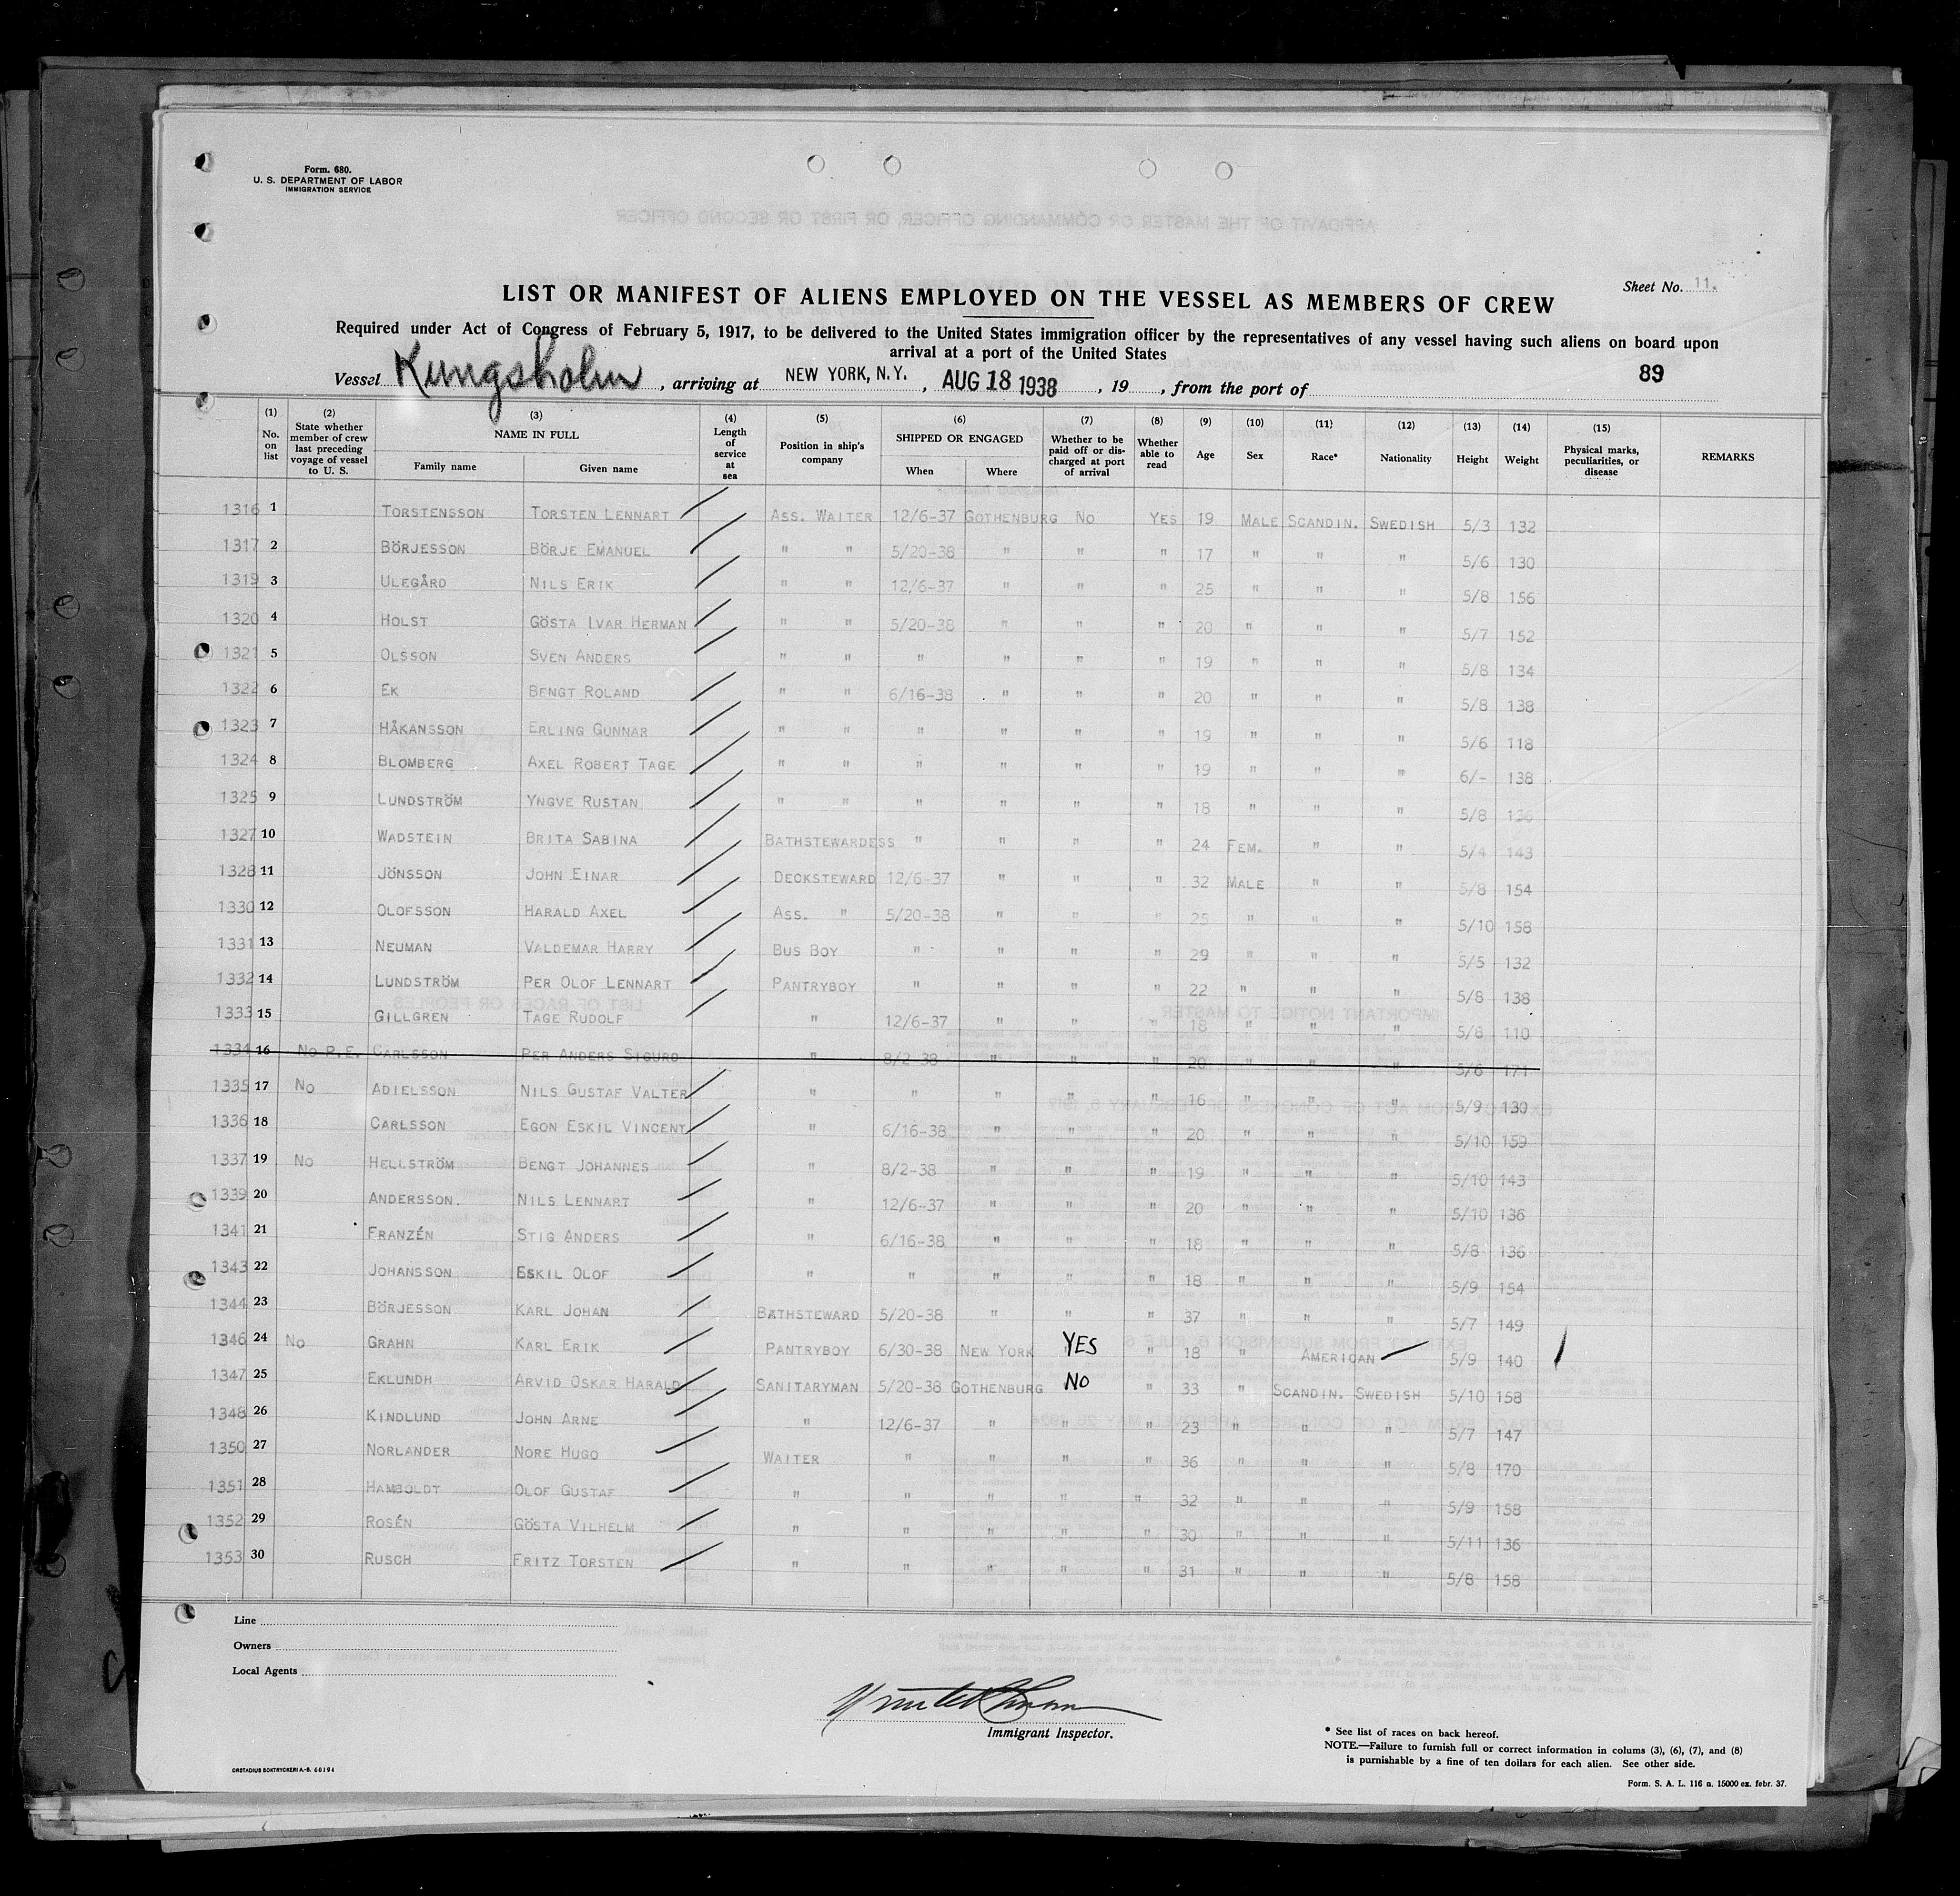 Form. 680.
U. S. DEPARTMENT OF LABOR
IMMIGRATION SERVICE
Sheet No. 11.
LIST OR MANIFEST OF ALIENS EMPLOYED ON THE VESSEL AS MEMBERS OF CREW
Required under Act of Congress of February 5, 1917, to be delivered to the United States immigration officer by the representatives of any vessel having such aliens on board upon
arrival at a port of the United States
89
Vessel Kungsholm, arriving at NEW YORK, N.Y., AUG 18 1938, 19, from the port of
(1) No. on list (2) State whether member of crew last preceding voyage of vessel to U. S. (3) NAME IN FULL Family name Given name (4) Length of service at sea (5) Position in ship's company (6) SHIPPED OR ENGAGED When Where (7) Whether to be paid off or discharged at port of arrival (8) Whether able to read (9) Age (10) Sex (11) Race* (12) Nationality (13) Height (14) Weight (15) Physical marks, peculiarities, or disease REMARKS
1316 1 TORSTENSSON TORSTEN LENNART ASS. WAITER 12/6-37 GOTHENBURG NO YES 19 MALE SCANDIN. SWEDISH 5/3 132
1317 2 BÖRJESSON BÖRJE EMANUEL " " 5/20-38 " " " 17 " " " 5/6 130
1319 3 ULEGÅRD NILS ERIK " " 12/6-37 " " " 25 " " " 5/8 156
1320 4 HOLST GÖSTA IVAR HERMAN " " 5/20-38 " " " 20 " " " 5/7 152
1321 5 OLSSON SVEN ANDERS " " " " " " 19 " " " 5/8 134
1322 6 EK BENGT ROLAND " " 6/16-38 " " " 20 " " " 5/8 138
1323 7 HÅKANSSON ERLING GUNNAR " " " " " " 19 " " " 5/6 118
1324 8 BLOMBERG AXEL ROBERT TAGE " " " " " " 19 " " " 6/- 138
1325 9 LUNDSTRÖM YNGVE RUSTAN " " " " " " 18 " " " 5/8 136
1327 10 WADSTEIN BRITA SABINA BATHSTEWARDESS " " " " 24 FEM. " " 5/4 143
1328 11 JÖNSSON JOHN EINAR DECKSTEWARD 12/6-37 " " " 32 MALE " " 5/8 154
1330 12 OLOFSSON HARALD AXEL ASS. " 5/20-38 " " " 25 " " " 5/10 158
1331 13 NEUMAN VALDEMAR HARRY BUS BOY " " " " 29 " " " 5/5 132
1332 14 LUNDSTRÖM PER OLOF LENNART PANTRYBOY " " " " 22 " " " 5/8 138
1333 15 GILLGREN TAGE RUDOLF " 12/6-37 " " " 18 " " " 5/8 110
1334 16 NO P.E. CARLSSON PER ANDERS SIGURD " 8/2-38 " " " 20 " " " 5/6 171
1335 17 NO ADIELSSON NILS GUSTAF VALTER " " " " " 16 " " " 5/9 130
1336 18 CARLSSON EGON ESKIL VINCENT " 6/16-38 " " " 20 " " " 5/10 159
1337 19 NO HELLSTRÖM BENGT JOHANNES " 8/2-38 " " " 19 " " " 5/10 143
1339 20 ANDERSSON. NILS LENNART " 12/6-37 " " " 20 " " " 5/10 136
1341 21 FRANZÉN STIG ANDERS " 6/16-38 " " " 18 " " " 5/8 136
1343 22 JOHANSSON ESKIL OLOF " " " " " 18 " " " 5/9 154
1344 23 BÖRJESSON KARL JOHAN BATHSTEWARD 5/20-38 " " " 37 " " " 5/7 149
1346 24 NO GRAHN KARL ERIK PANTRYBOY 6/30-38 NEW YORK YES " 18 " AMERICAN 5/9 140
1347 25 EKLUNDH ARVID OSKAR HARALD SANITARYMAN 5/20-38 GOTHENBURG NO " 33 " SCANDIN. SWEDISH 5/10 158
1348 26 KINDLUND JOHN ARNE " 12/6-37 " " " 23 " " " 5/7 147
1350 27 NORLANDER NORE HUGO WAITER " " " " 36 " " " 5/8 170
1351 28 HAMBOLDT OLOF GUSTAF " " " " " 32 " " " 5/9 158
1352 29 ROSÉN GÖSTA VILHELM " " " " " 30 " " " 5/11 136
1353 30 RUSCH FRITZ TORSTEN " " " " " 31 " " " 5/8 158
Line
Owners
Local Agents
Immigrant Inspector.
* See list of races on back hereof.
NOTE.—Failure to furnish full or correct information in colums (3), (6), (7), and (8)
is punishable by a fine of ten dollars for each alien. See other side.
ORSTADIUS BOKTRYCKERI A.-B. 60194
Form. S. A. L. 116 n. 15000 ex. febr. 37.